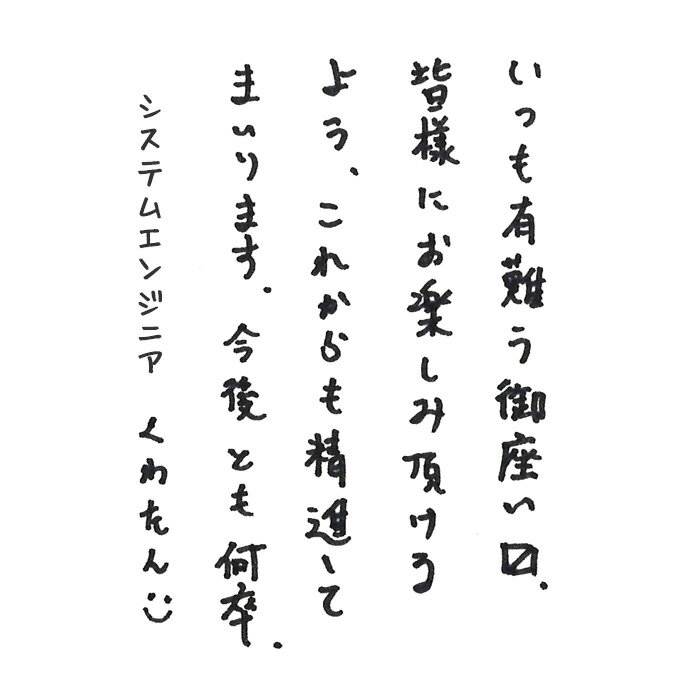 いつも有難う御座い〼.
皆様にお楽しみ頂ける
よう、これからも精進して
まいります. 今後とも何卒.
システムエンジニア くわたん